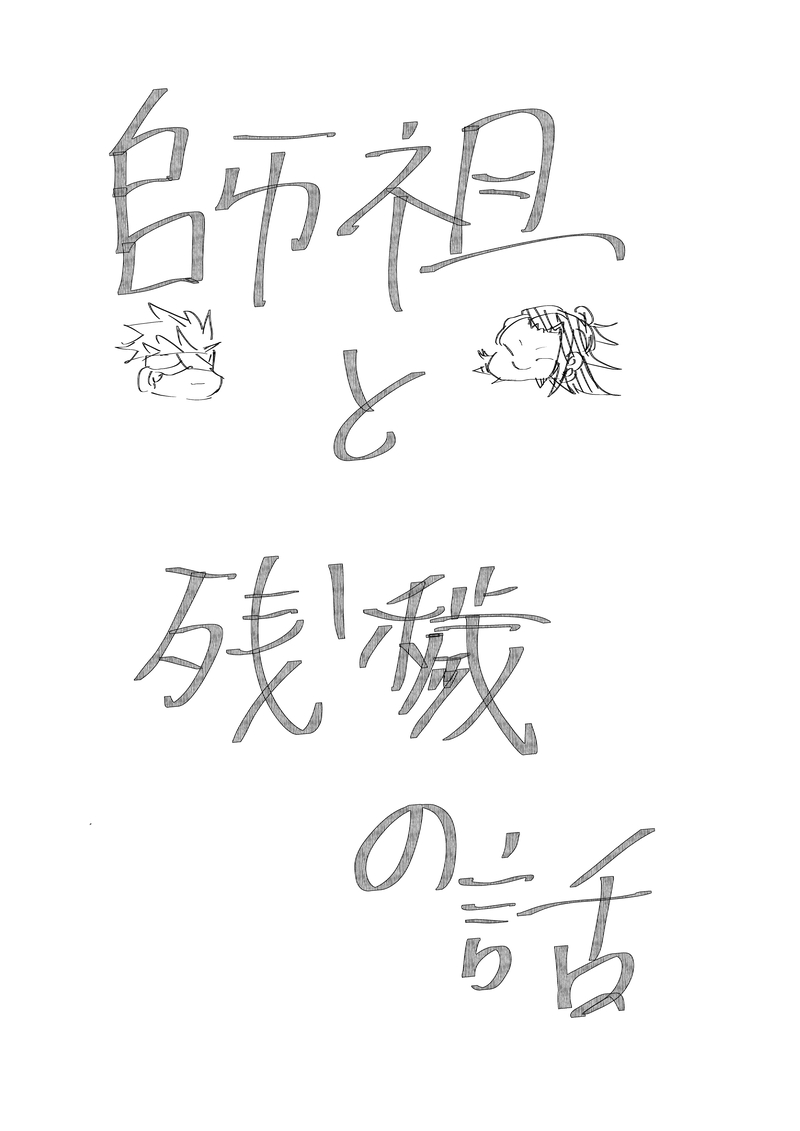 師祖
と
残穢
の話